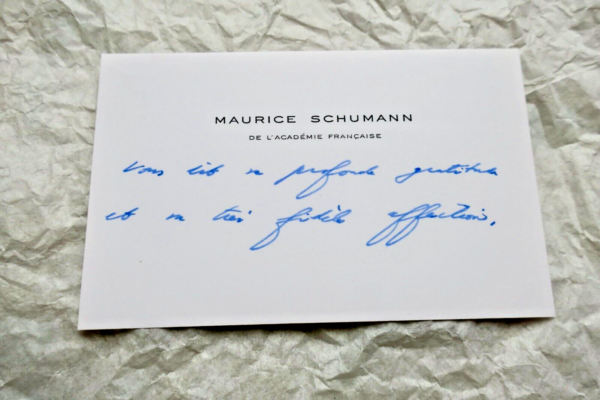 MAURICE SCHUMANN
DE L'ACADÉMIE FRANÇAISE
vous dit sa profonde gratitude
et sa très fidèle affection.